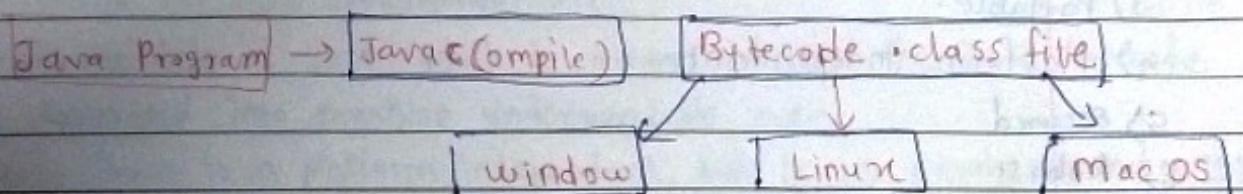 Java Program → Javac (Compile) Bytecode .class file
window Linux Mac OS